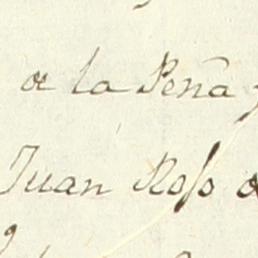 de la Peña
Juan Roso de